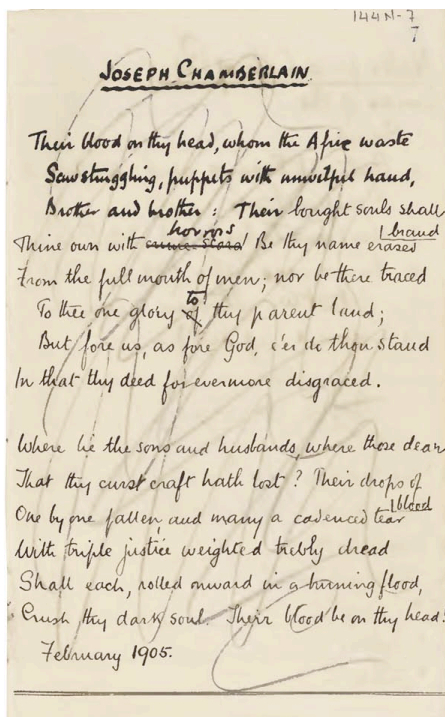 144N-7
7
JOSEPH CHAMBERLAIN.
Their blood on thy head, whom the Afric waste
Saw struggling, puppets with unwilful hand,
Brother and brother: Their bought souls shall brand
Thine own with horrors! Be thy name erased
From the full mouth of men; nor be there traced
To thee one glory to thy parent land;
But fore us, as fore God, e'er do thou stand
In that thy deed forevermore disgraced.
Where lie the sons and husbands, where those dear
That thy curst craft hath lost? Their drops of blood
One by one fallen, and many a cadenced tear
With triple justice weighted trebly dread
Shall each, rolled onward in a burning flood,
Crush thy dark soul. Their blood be on thy head!
February 1905.